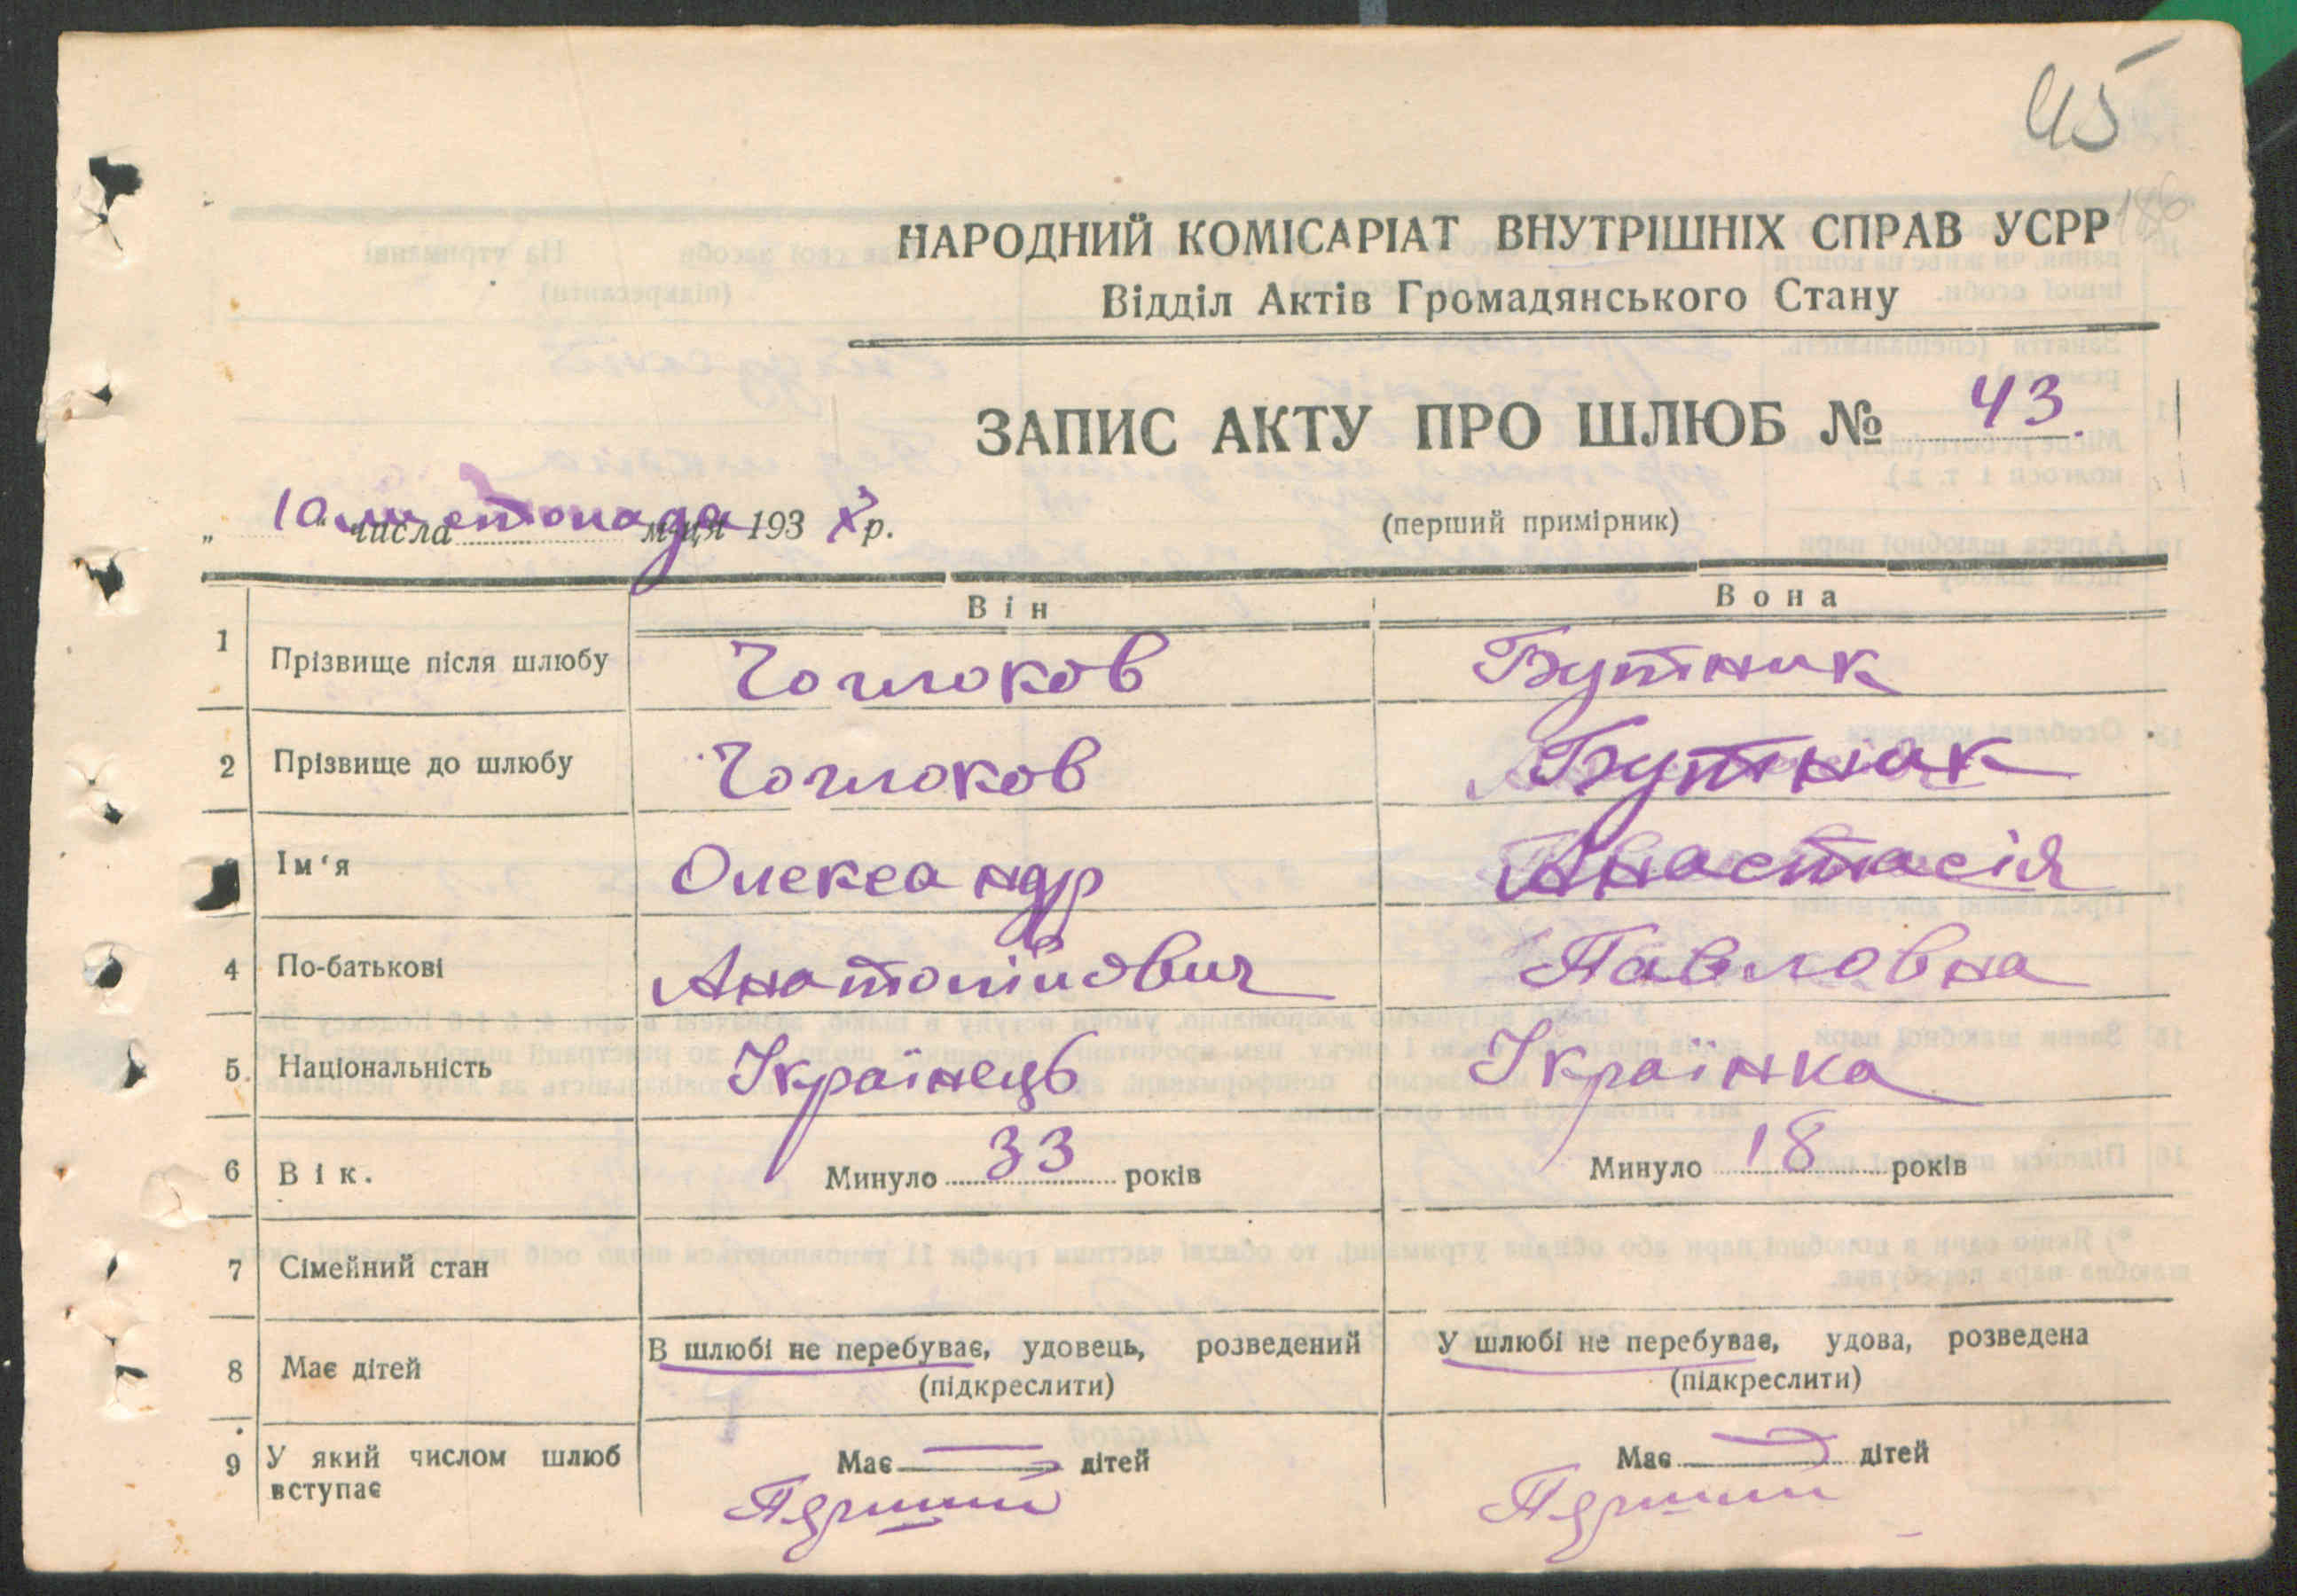 45
186
НАРОДНИЙ КОМІСАРІАТ ВНУТРІШНІХ СПРАВ УСРР
Відділ Актів Громадянського Стану
ЗАПИС АКТУ ПРО ШЛЮБ № 43.
„ 10 " числа листопада м-ця 193 р.
(перший примірник)
Він Вона
1 Прізвище після шлюбу Чоглоков Бутник
2 Прізвище до шлюбу Чоглоков Бутник
Ім'я Олександр Анастасія
4 По-батькові Анатолійович Павловна
5. Національність Українець Українка
6 Вік. Минуло 33 років Минуло 18 років
7 Сімейний стан
8 Має дітей В шлюбі не перебуває, удовець, розведений У шлюбі не перебуває, удова, розведена
(підкреслити) (підкреслити)
9 У який числом шлюб Має дітей Має дітей
вступає Перший Перший